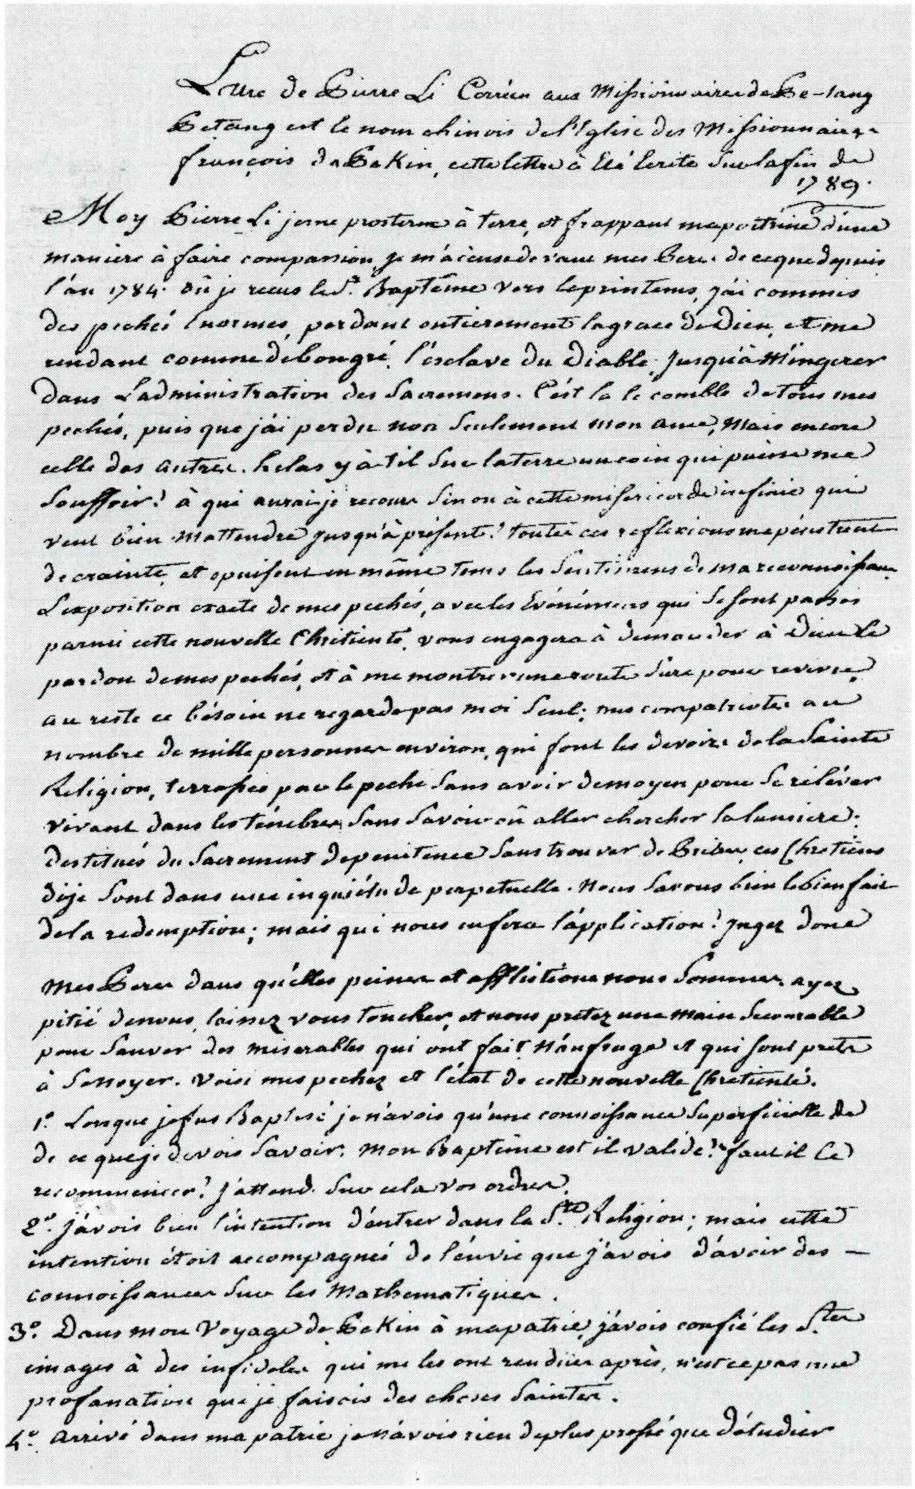 Lettre de Pierre Li Coréen aux Missionnaires de Pe-tang
Petang est le nom chinois de l'Eglise des Missionnaires
françois de Pekin, cette lettre à Eté Ecrite Sur la fin de
1789.
Moy Pierre Li jerne prosterne à terre, et frappant ma poitrine d'une
maniere à faire compassion, je m'accuse devant mes Peres de ce que depuis
l'an 1784. où je reçus le St. Baptême vers le printems, j'ai commis
des pechés Enormes, perdant entierement la grace de Dieu, et me
rendant comme de bon gré l'esclave du Diable, jusqu'à M'ingerer
dans L'administration des Sacremens. C'est la le comble de tous mes
pechés, puis que j'ai perdu non Seulement mon ame, mais encore
celle des autres. helas y à t'il Sur la terre un coin qui puisse me
Souffrir? à qui aurai-je recours Sinon à cette misericorde infinie qui
veut bien m'attendre jusqu'à présent! toutes ces reflexions me pénetrent
de crainte, et epuisent en même tems les Sentimens de ma reconnoissance
L'exposition exacte de mes pechés, avec les Evénémens qui Se sont passés
parmi cette nouvelle Chretienté, vous engagera à demander à Dieu le
pardon de mes pechés, et à me montrer une route Sure pour revivre,
au reste ce bésoin ne regarde pas moi Seul; mes compatriotes au
nombre de mille personnes environ, qui font les devoirs de la Sainte
Religion, terrassés par le peché Sans avoir de moyen pour Se réléver
vivant dans les ténebres, Sans Savoir où aller chercher la lumiere.
destitués du Sacrement de penitence Sans trouver de Prêtre, ces Chretiens
dije Sont dans une inquiétude perpetuelle. Nous Savons bien le bienfait
de la redemption; mais qui nous en fera l'application? Jugez donc
Mes Peres dans qu'elles peines et afflictions nous Sommes. ayez
pitié de nous, laissez vous toucher, et nous pretez une main Secourable
pour Sauver des miserables qui ont fait Náufrage et qui Sont prets
à Se noyer. Voici mes pechez et l'état de cette nouvelle Chretienté.
1°. Lorsque je fus Baptisé je n'avois qu'une connoissance Superficielle de
de ce que je devois Savoir. Mon Baptême est il valide? faut il le
recommencer? J'attend Sur cela vos ordres.
2°. j'avois bien l'intention d'entrer dans la Ste. Religion; mais cette
intention étoit accompagnée de l'envie que j'avois d'avoir des —
connoissances Sur les Mathematiques.
3°. Dans mon Voyage de Pekin à ma patrie, j'avois confié les Stes
images à des infideles qui me les ont rendües après, n'est ce pas une
profanation que je faisois des choses Saintes.
4°. arrivé dans ma patrie je n'avois rien de plus pressé que d'étudier